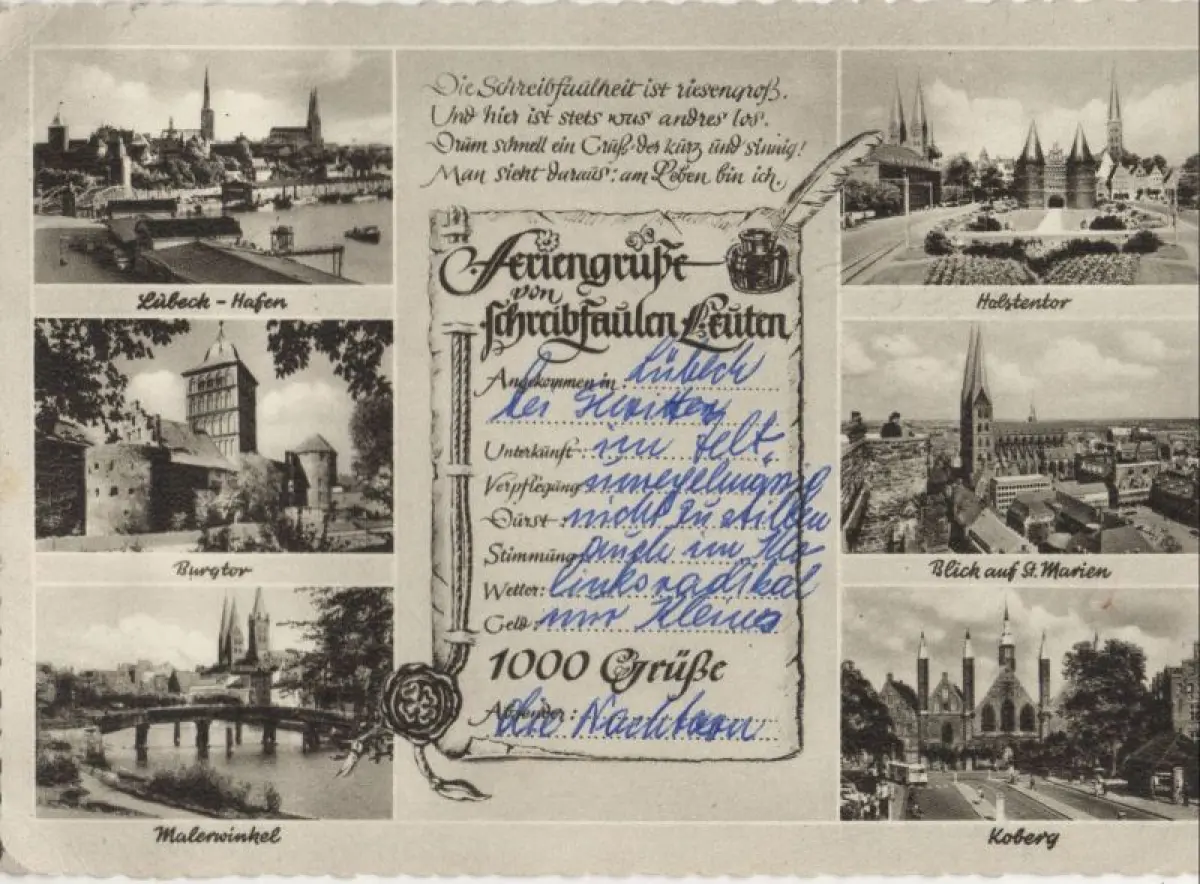 Die Schreibfaulheit ist riesengroß.
Und hier ist stets was andres los.
Drum schnell ein Gruß, der kurz und sinnig!
Man sieht daraus: am Leben bin ich.
Feriengrüße
von
schreibfaulen Leuten
Angekommen in: Lübeck
bei
Unterkunft: im Zelt,
Verpflegung unregelmäßig
Durst: nicht zu stillen
Stimmung: auch im Klo
Wetter: linksradikal
Geld: nur Kleines
1000 Grüße
Absender: Die Nachbarn
Lübeck - Hafen
Burgtor
Malerwinkel
Holstentor
Blick auf St. Marien
Koberg